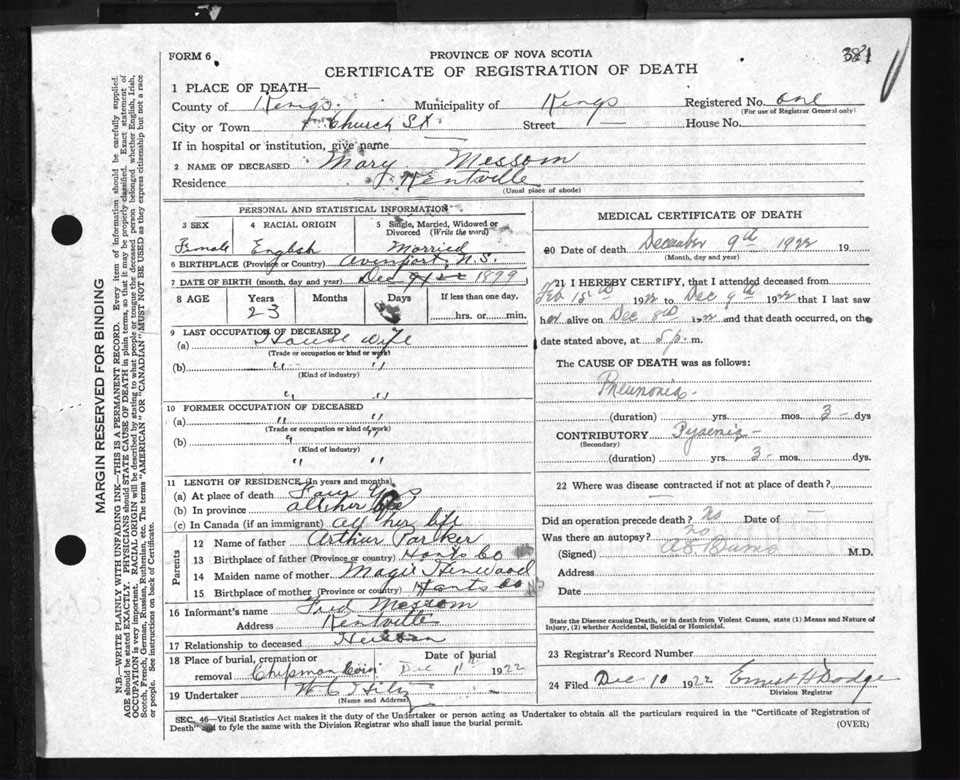 FORM 6
PROVINCE OF NOVA SCOTIA
381
CERTIFICATE OF REGISTRATION OF DEATH
1 PLACE OF DEATH—
County of Kings. Municipality of Kings Registered No. one
(For use of Registrar General only)
City or Town Church St Street House No.
If in hospital or institution, give name
2 NAME OF DECEASED Mary Messom
Residence Kentville
(Usual place of abode)
PERSONAL AND STATISTICAL INFORMATION
3 SEX 4 RACIAL ORIGIN 5 Single, Married, Widowed or Divorced (Write the word)
Female English Married
6 BIRTHPLACE (Province or Country) Avonport, N.S.
7 DATE OF BIRTH (month, day and year) Dec 1899
8 AGE Years Months Days If less than one day,
23 hrs. or min.
9 LAST OCCUPATION OF DECEASED
(a) House wife
(Trade or occupation or kind or work)
(b) " "
(Kind of industry)
" "
10 FORMER OCCUPATION OF DECEASED
(a) " "
(Trade or occupation or kind of work)
(b) "
(Kind of industry)
" "
11 LENGTH OF RESIDENCE (In years and months)
(a) At place of death
(b) In province all her life
(c) In Canada (if an immigrant) All her life
Parents
12 Name of father Arthur Parker
13 Birthplace of father (Province or country) Hants Co NO
14 Maiden name of mother Magie
15 Birthplace of mother (Province or country) Hants Co NO
16 Informant's name Fred Messom
Address Kentville
17 Relationship to deceased
18 Place of burial, cremation or removal Date of burial
Dec 11th 1922
19 Undertaker
(Name and Address)
MEDICAL CERTIFICATE OF DEATH
20 Date of death December 9th 1922 19
(Month, day and year)
21 I HEREBY CERTIFY, that I attended deceased from
Feb 1922 to Dec 9th 1922 that I last saw
her alive on Dec 8th 1922 and that death occurred, on the
date stated above, at 5 p. m.
The CAUSE OF DEATH was as follows:
Pneumonia.
(duration) yrs. mos. 3 dys
CONTRIBUTORY Pyaemia
(Secondary)
(duration) yrs. 3 mos. dys.
22 Where was disease contracted if not at place of death?
Did an operation precede death? No Date of
Was there an autopsy? no
(Signed) M.D.
Address
Date
State the Disease causing Death, or in death from Violent Causes, state (1) Means and Nature of
Injury, (2) whether Accidental, Suicidal or Homicidal.
23 Registrar's Record Number
24 Filed Dec 10 1922 Ernest H Dodge
Division Registrar
SEC. 46—Vital Statistics Act makes it the duty of the Undertaker or person acting as Undertaker to obtain all the particulars required in the "Certificate of Registration of
Death" and to fyle the same with the Division Registrar who shall issue the burial permit.
(OVER)
MARGIN RESERVED FOR BINDING
N.B.—WRITE PLAINLY WITH UNFADING INK—THIS IS A PERMANENT RECORD. Every item of information should be carefully supplied.
AGE should be stated EXACTLY. PHYSICIANS should STATE CAUSE OF DEATH in plain terms, so that it may be properly classified. Exact statement of
OCCUPATION is very important. RACIAL ORIGIN will be described by stating to what people or tongue the deceased person belonged whether English, Irish,
Scotch, French, German, Russian, Ruthenian, etc. The terms "AMERICAN" OR "CANADIAN" MUST NOT BE USED as they express citizenship but not a race
or people. See instructions on back of Certificate.